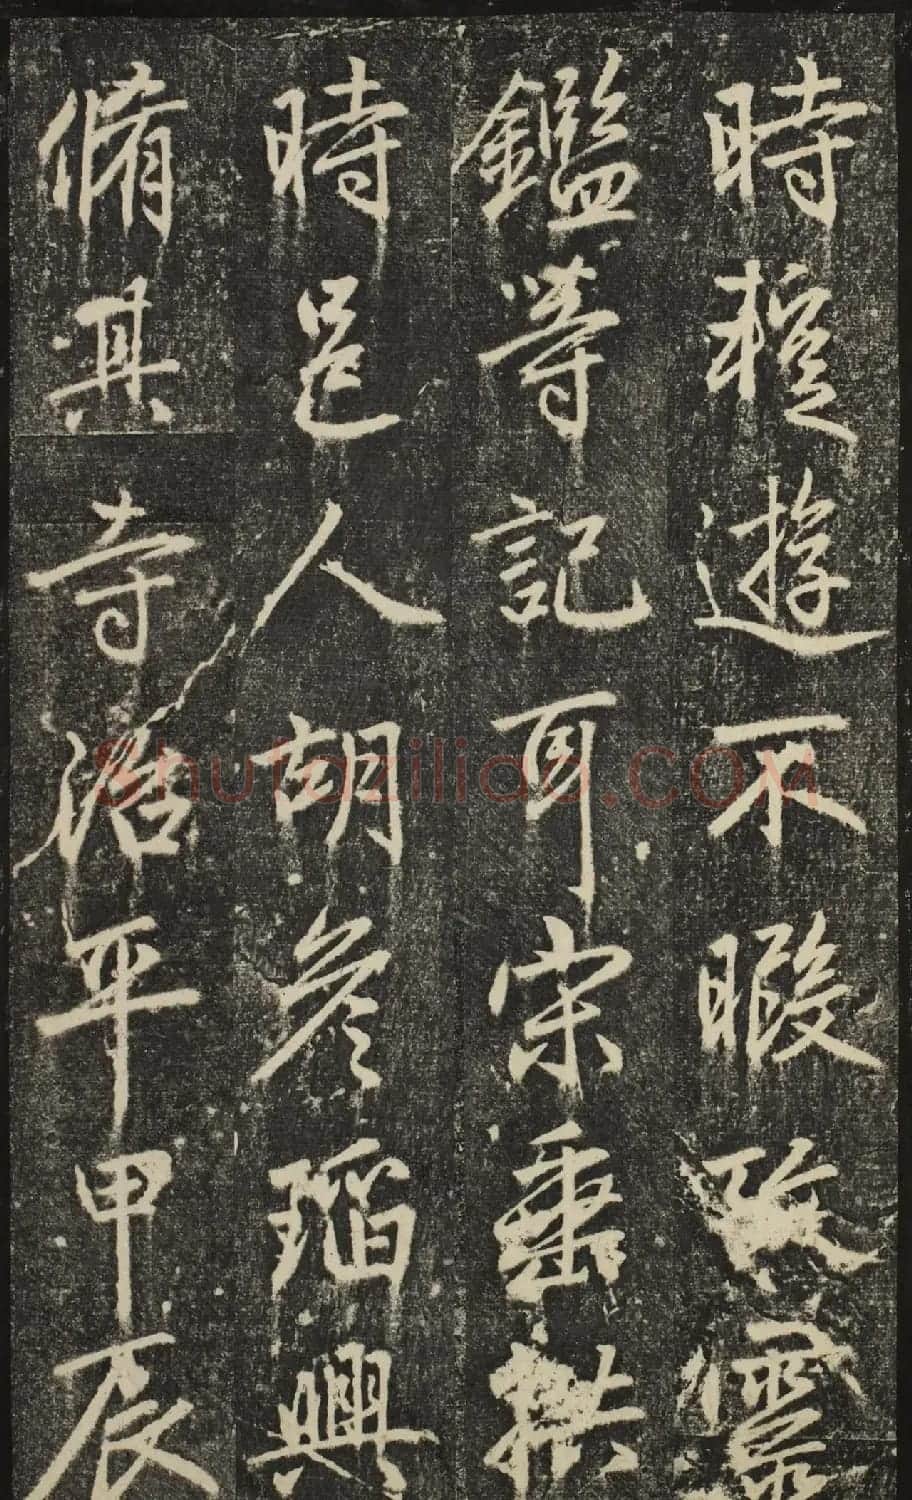 時遊不暇靈
鑑等記耳宋垂拱
時邑人胡瑫興
脩其寺治平甲辰
Shufaziliao.COM